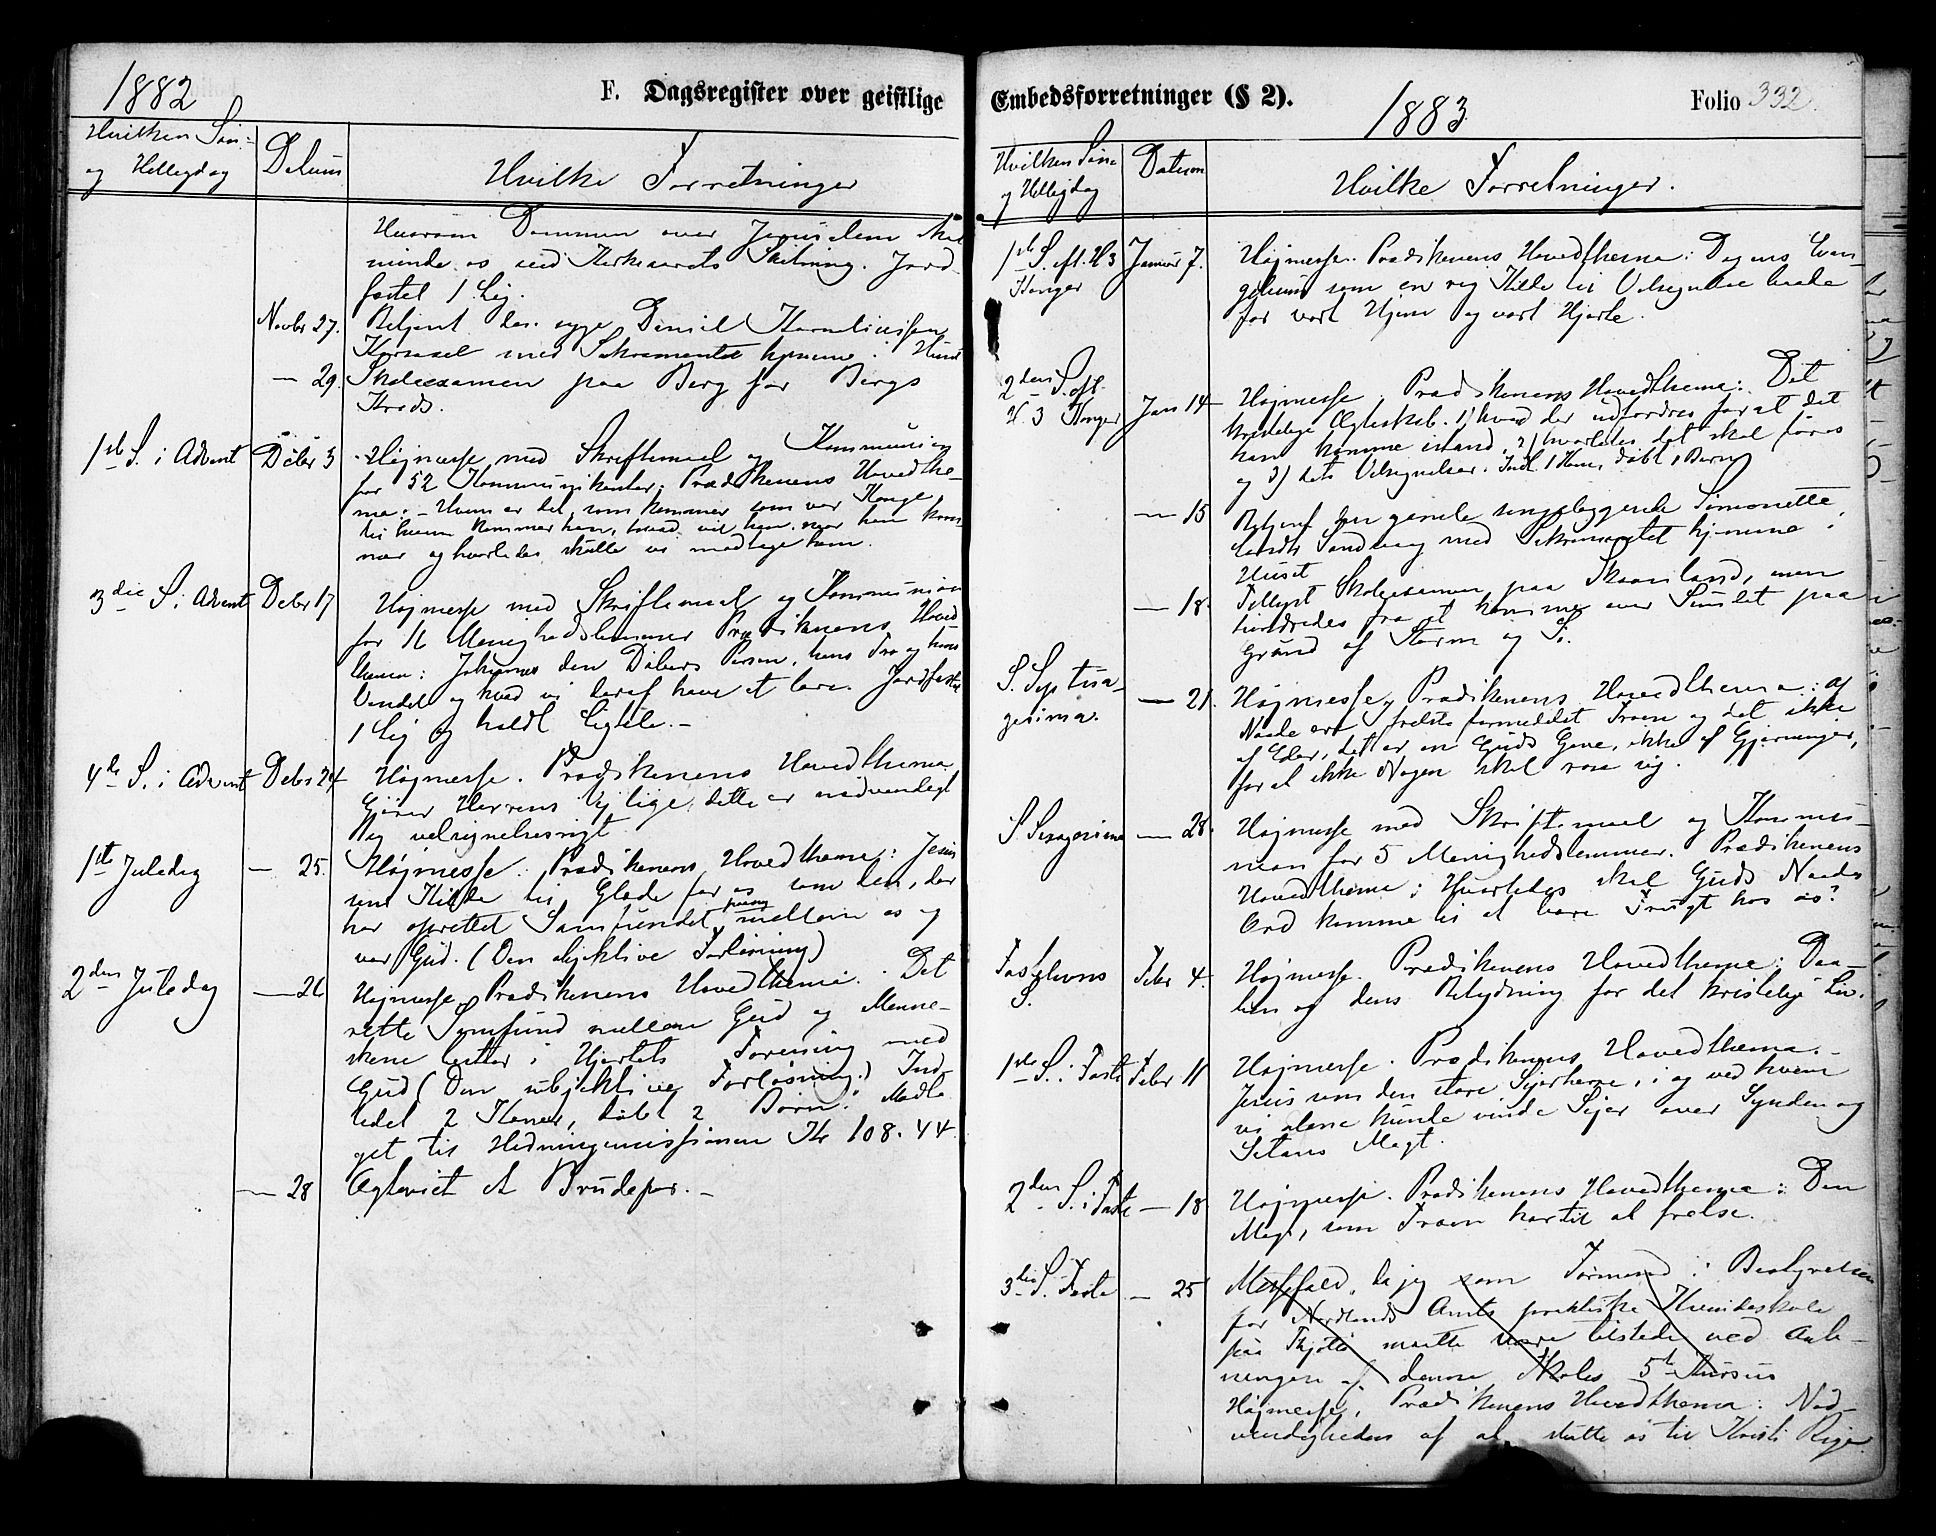 1882
F. Dagsregister over geistlige
Hvilken Søn-
og Helligdag
Datum
Hvilke Forretninger
Hvorom Dommen over Jerusalem skal
minde os ved Kirkeaarets Slutning. Jord-
fæstet 1 Lig.
Novbr 27. Betjent den syge Daniel Korneliussen
med Sakramentet hjemme i Huset
— 29. Skoleexamen paa Berg for Bergs
Kreds.
1ste S. i Advent Decbr 3 Højmesse med Skriftemaal og Kommunion
for 52 Kommunikanter. Prædikenens Hovedthe-
ma: — Hvem er det, som kommer som vor Konge,
til hvem kommer han, hvad vil han, naar han kom-
mer og hvorledes skulle vi modtage ham.
3die S. i Advent Decbr 17 Højmesse med Skriftemaal og Kommunion
for 11 Menighedslemmer Prædikenens Hoved-
thema: Johannes den Døbers Person, hans Tro og hans
Vandel og hvad vi deraf have at lære. Jordfæstet
1 Lig og holdt Ligtale. —
4de S. i Advent Decbr 24 Højmesse. Prædikenens Hovedthema
Gjører Herrens Vej lige, dette er nødvendigt
og velsignelsesrigt
1ste Juledag — 25. Højmesse. Prædikenens Hovedthema: Jesus
som Kilde til Glæde for os som den, der
har oprettet Samfundet mellem os og
vor Gud. (Den objektive Forløsning)
2den Juledag — 26 Højmesse. Prædikenens Hovedthema: Det
rette Samfund mellem Gud og Menne-
skene bestaar i Hjertets Forening med
Gud (Den subjektive Forløsning.) Ind-
ledet 2 Koner, døbt 2 Børn. Modta-
get til Hedningemissionen Kr 108.44
— 28 Ægteviet et Brudepar. —
Embedsforretninger (§ 2).
1883
Folio 332.
Hvilken Søn-
og Helligdag
Datum
Hvilke Forretninger.
1ste S. eft. H3
Konger
Januar 7. Højmesse. Prædikenens Hovedthema: Dagens Evan-
gelium som en rig Kilde til Velsignelse baade
for vort Hjem og vort Hjerte.
2den S. eft.
H. 3 Konger
Jan 14 Højmesse. Prædikenens Hovedthema: Det
kristelige Ægteskab. 1) hvad der udfordres for at det
kan komme istand, 2) hvorledes det skal føres
og 3) dets Velsignelser. Indl. 1 Kone, døbt 1 Barn
— 15 Betjent den gamle sengeliggende Simonette
Sandvaag med Sakramentet hjemme i
Huset
— 18. Tillyst Skoleexamen paa Skaanland, men
hindredes fra at komme over Sundet paa
Grund af Storm og Sø.
S. Septua-
gesima.
— 21. Højmesse, Prædikenens Hovedthema: af
Naade ere I frelste formedelst Troen og det ikke
af Eder, det er en Guds Gave, ikke af Gjerninger,
for at ikke Nogen skal rose sig.
S. Sexagesima — 28. Højmesse med Skriftemaal og Kommu-
nion for 5 Menighedslemmer. Prædikenens
Hovedthema: Hvorledes skal Guds Naades
Ord komme til at bære Frugt hos os?
Fastelavns
S.
Febr 4. Højmesse. Prædikenens Hovedthema: Daa-
ben og dens Betydning for det kristelige Liv.
1ste S. i Faste Febr 11 Højmesse. Prædikenens Hovedthema. —
Jesus som den store Sejerherre, i og ved hvem
vi alene kunde vinde Sejer over Synden og
Satans Magt.
2den S. i Faste — 18 Højmesse. Prædikenens Hovedthema: Den
Magt, som Troen har til at frelse.
3die S. i Faste — 25 Messefald, da jeg som Formand i Bestyrelsen
for Nordlands Amts praktiske Kvindeskole
paa Tjøtta maatte være tilstede ved Aab-
ningen af denne Skoles 5te Kursus
Højmesse, Prædikenens Hovedthema: Nød-
vendigheden af at slutte os til Kristi Rige